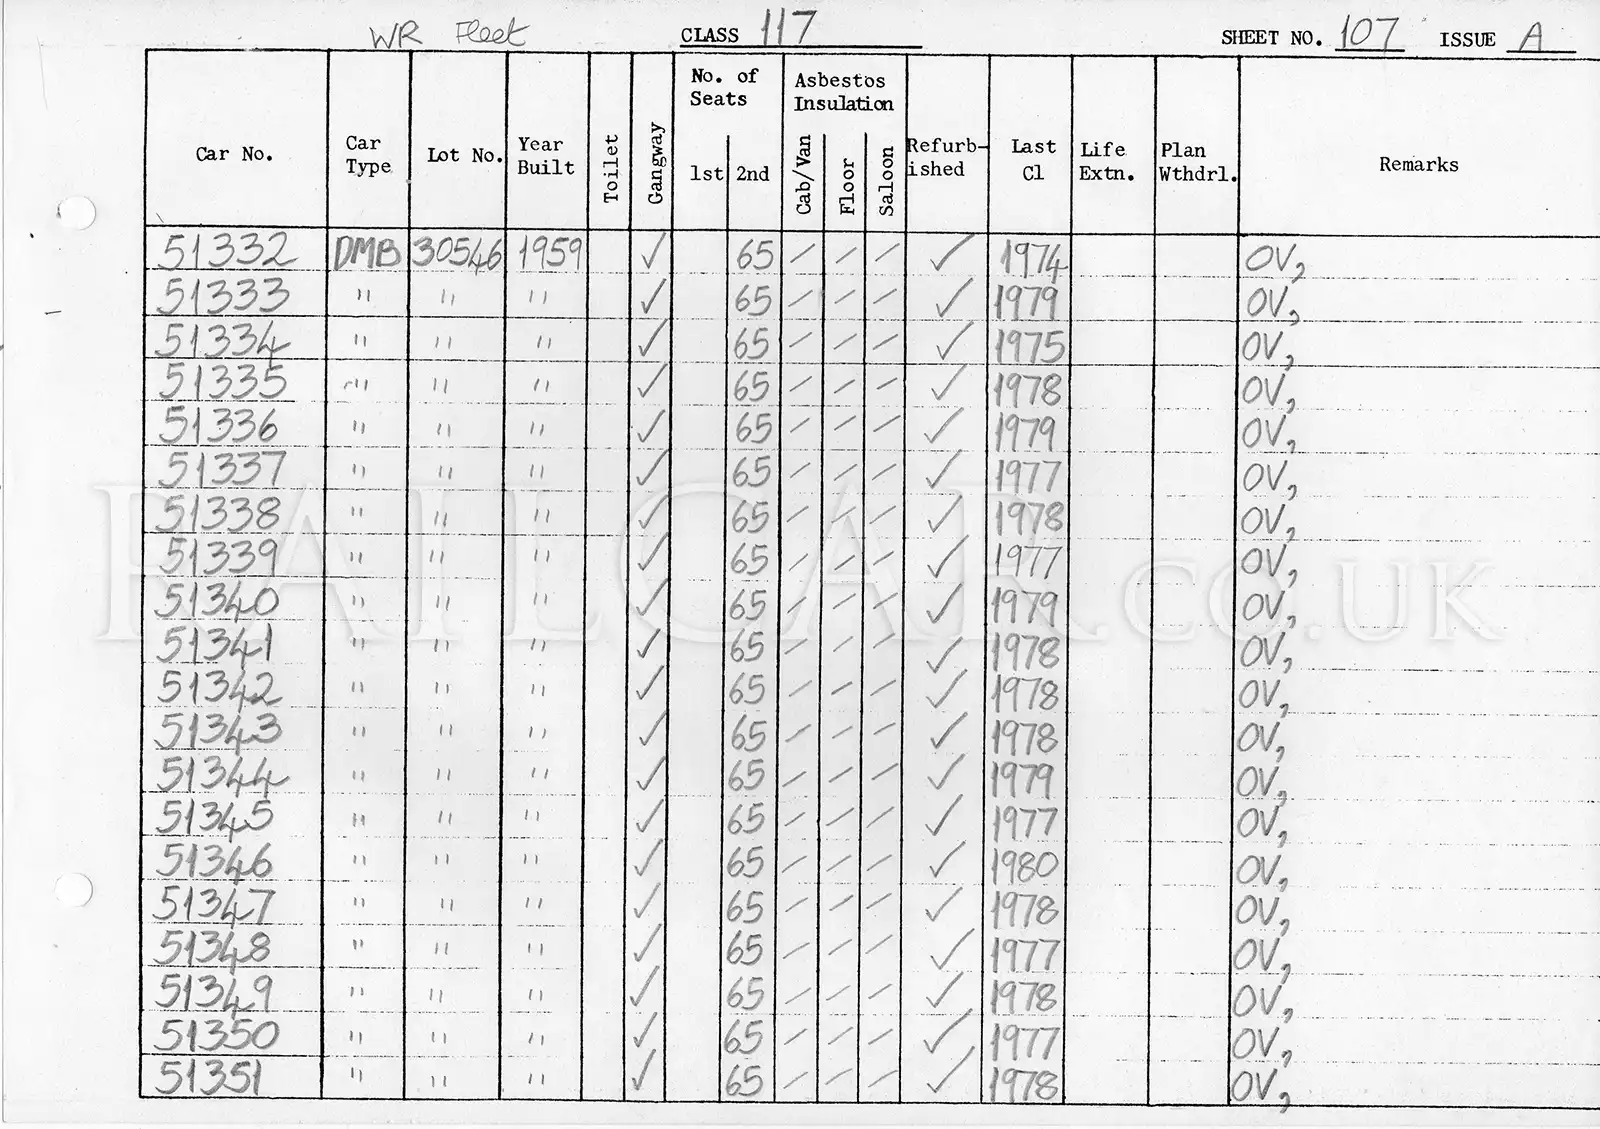 WR Fleet CLASS 117 SHEET NO. 107 ISSUE A
Car No. Car Type Lot No. Year Built Toilet Gangway No. of Seats 1st 2nd Asbestos Insulation Cab/Van Floor Saloon Refurb-ished Last Cl Life Extn. Plan Wthdrl. Remarks
51332 DMB 30546 1959 ✓ 65 / / / ✓ 1974 OV,
51333 " " " ✓ 65 / / / ✓ 1979 OV,
51334 " " " ✓ 65 / / / ✓ 1975 OV,
51335 " " " ✓ 65 / / / ✓ 1978 OV,
51336 " " " ✓ 65 / / / ✓ 1979 OV,
51337 " " " ✓ 65 / / / ✓ 1977 OV,
51338 " " " ✓ 65 / / / ✓ 1978 OV,
51339 " " " ✓ 65 / / / ✓ 1977 OV,
51340 " " " ✓ 65 / / / ✓ 1979 OV,
51341 " " " ✓ 65 / / / ✓ 1978 OV,
51342 " " " ✓ 65 / / / ✓ 1978 OV,
51343 " " " ✓ 65 / / / ✓ 1978 OV,
51344 " " " ✓ 65 / / / ✓ 1979 OV,
51345 " " " ✓ 65 / / / ✓ 1977 OV,
51346 " " " ✓ 65 / / / ✓ 1980 OV,
51347 " " " ✓ 65 / / / ✓ 1978 OV,
51348 " " " ✓ 65 / / / ✓ 1977 OV,
51349 " " " ✓ 65 / / / ✓ 1978 OV,
51350 " " " ✓ 65 / / / ✓ 1977 OV,
51351 " " " ✓ 65 / / / ✓ 1978 OV,
RAILCAR.CO.UK